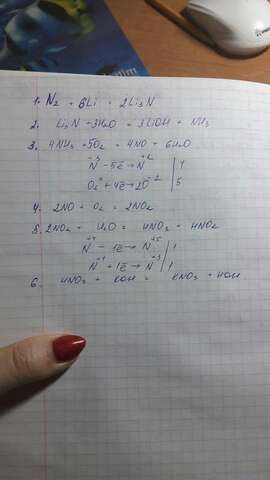 1. N₂ + 6Li = 2Li₃N
2. Li₃N + 3H₂O = 3LiOH + NH₃
3. 4NH₃ + 5O₂ = 4NO + 6H₂O
N⁻³ - 5e̅ → N⁺² | 4
O₂⁰ + 4e̅ → 2O⁻² | 5
4. 2NO + O₂ = 2NO₂
5. 2NO₂ + H₂O = HNO₃ + HNO₂
N⁺⁴ - 1e̅ → N⁺⁵ | 1
N⁺⁴ + 1e̅ → N⁺³ | 1
6. HNO₃ + KOH = KNO₃ + HOH